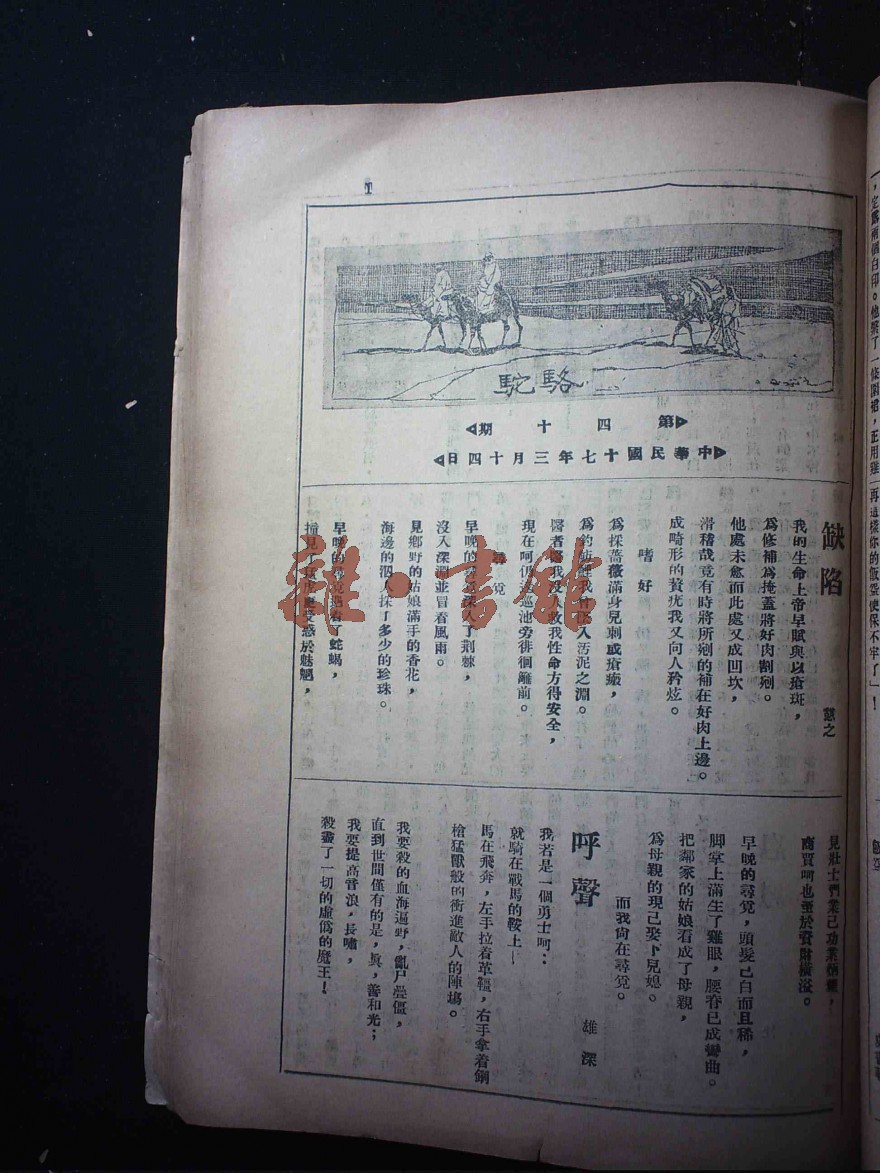 駱駝
第四十期
中華民國十七年三月十四日
缺陷
慈之
我的生命上帝早賦與以瘡斑,
爲修補爲掩蓋將好肉割剜。
他處未愈而此處又成凹坎,
滑稽哉竟有時將所剜的補在好肉上邊。
成畸形的贅疣我又向人矜炫。
嗜好
爲採薔薇滿身兒刺成瘡瘢,
爲釣
入汚泥之淵。
我
人救我性命方得安全,
現在呵仍
池旁徘徊籬前。
尋覓
早晚的尋
深入了荆棘,
沒入深淵並冒着風雨。
見鄉野的姑娘滿手的香花,
海邊的泅人採了多少的珍珠。
早晚的尋覓遇着了蛇蝎,
撞見了
受惑於魅魍,
見壯士們業已功業
商賈呵也至於資財橫溢。
早晚的尋覓,頭髮已白而且稀,
脚掌上滿生了雞眼,腰脊已成彎曲。
把鄰家的姑娘看成了母親,
爲母親的現已娶下兒媳。
而我尙在尋覓。
呼聲
雄深
我若是一個勇士呵:
就騎在戰馬的鞍上—
馬在飛奔,左手拉着革韁,右手拿着鋼
槍猛獸般的衝進敵人的陣塲。
我要殺的血海遍野,亂尸疊僵,
直到世間僅有的是,眞,善和光;
我要提高音浪,長嘯,
殺盡了一切的虛僞的魔王!
雜·書館